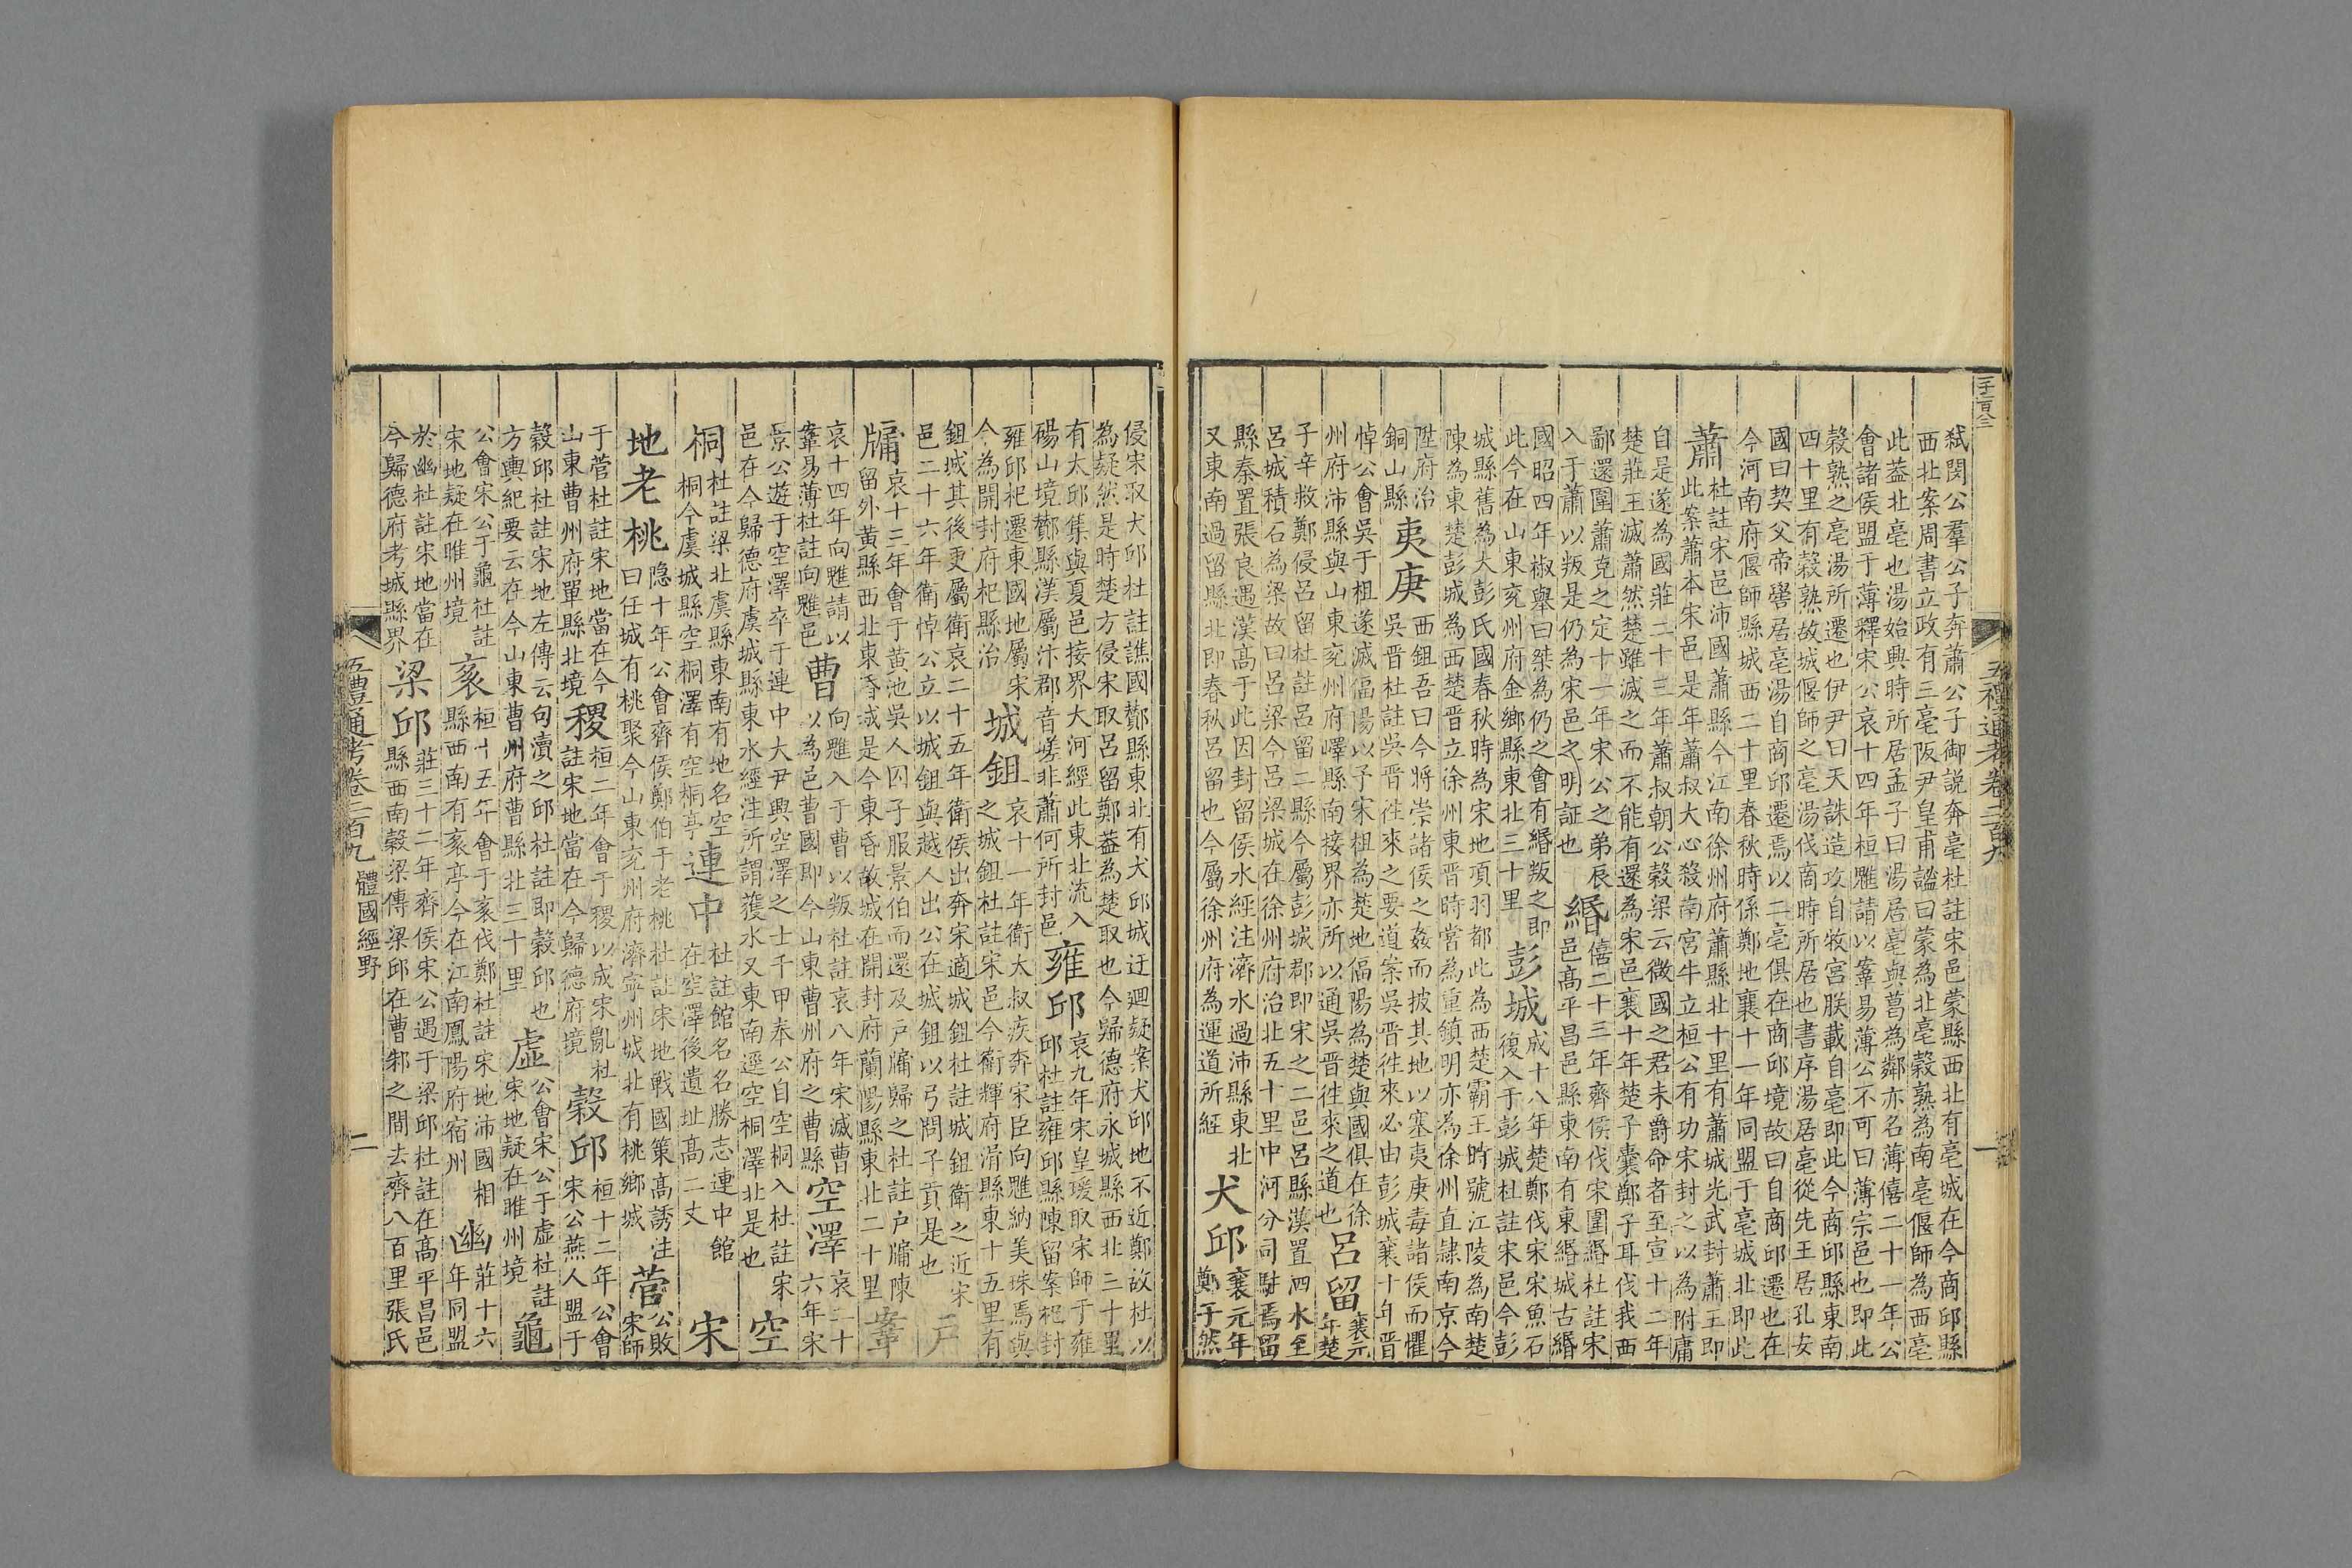 弑閔公羣公子奔蕭公子御說奔亳杜註宋邑蒙縣西北有亳城在今商邱縣
西北案周書立政有三亳阪尹皇甫謐曰蒙為北亳穀熟為南亳偃師為西亳
此葢北亳也湯始興時所居孟子曰湯居亳與葛為鄰亦名薄僖二十一年公
會諸侯盟于薄釋宋公哀十四年桓魋請以鞌易薄公不可曰薄宗邑也即此
穀熟之亳湯所遷也伊尹曰天誅造攻自牧宮朕載自亳即此今商邱縣東南
四十里有穀熟故城偃師之亳湯伐商時所居也書序湯居亳從先王居孔安
國曰契父帝嚳居亳湯自商邱遷焉以二亳俱在商邱境故曰自商邱遷也在
今河南府偃師縣城西二十里春秋時係鄭地襄十一年同盟于亳城北即此
蕭
杜註宋邑沛國蕭縣今江南徐州府蕭縣北十里有蕭城光武封蕭王即
此案蕭本宋邑是年蕭叔大心殺南宮牛立桓公有功宋封之以為附庸
自是遂為國莊二十三年蕭叔朝公穀梁云微國之君未爵命者至宣十二年
楚莊王滅蕭然楚雖滅之而不能有還為宋邑襄十年楚子囊鄭子耳伐我西
鄙還圍蕭克之定十一年宋公之弟辰
入于蕭以叛是仍為宋邑之明証也
緡
僖二十三年齊侯伐宋圍緡杜註宋
邑高平昌邑縣東南有東緡城古緡
國昭四年椒舉曰桀為仍之會有緡叛之即
此今在山東兖州府金鄉縣東北三十里
彭城
成十八年楚鄭伐宋宋魚石
復入于彭城杜註宋邑今彭
城縣舊為大彭氏國春秋時為宋地項羽都此為西楚霸王時號江陵為南楚
陳為東楚彭城為西楚晉立徐州東晉時嘗為重鎮明亦為徐州直隸南京今
陞府治
銅山縣
夷庚
西鉏吾曰今將崇諸侯之姦而披其地以塞夷庚毒諸侯而懼
吳晉杜註吳晉徃來之要道案吳晉徃來必由彭城襄十年晉
悼公會吳于柤遂滅偪陽以予宋柤為楚地偪陽為楚與國俱在徐
州府沛縣與山東兖州府嶧縣南接界亦所以通吳晉徃來之道也
呂留
襄元
年楚
子辛救鄭侵呂留杜註呂留二縣今屬彭城郡即宋之二邑呂縣漢置泗水至
呂城積石為梁故曰呂梁今呂梁城在徐州府治北五十里中河分司駐焉留
縣秦置張良遇漢高于此因封留侯水經注濟水過沛縣東北
又東南過留縣北即春秋呂留也今屬徐州府為運道所經
犬邱
襄元年
鄭子然
侵宋取犬邱杜註譙國酇縣東北有犬邱城迂迴疑案犬邱地不近鄭故杜以
為疑然是時楚方侵宋取呂留鄭葢為楚取也今歸德府永城縣西北三十里
有太邱集與夏邑接界大河經此東北流入
碭山境酇縣漢屬沛郡音嵯非蕭何所封邑
雍邱
哀九年宋皇瑗取宋師于雍
邱杜註雍邱縣陳留案杞封
雍邱杞遷東國地屬宋
今為開封府杞縣治
城鉏
哀十一年衛大叔疾奔宋臣向魋納美珠焉與
之城鉏杜註宋邑今衛輝府滑縣東十五里有
鉏城其後更屬衛哀二十五年衛侯出奔宋適城鉏杜註城鉏衛之近宋
邑二十六年衛悼公立以城鉏與越人出公在城鉏以弓問子貢是也
戶
牖
哀十三年會于黄池吳人囚子服景伯而還及戶牖歸之杜註戶牖陳
留外黄縣西北東昏城是今東昏故城在開封府蘭陽縣東北二十里
鞌
哀十四年向魋請以
鞌易薄杜註向魋邑
曹
向魋入于曹以叛杜註哀八年宋滅曹
以為邑曹國即今山東曹州府之曹縣
空澤
哀二十
六年宋
景公遊于空澤卒于連中大尹興空澤之士千甲奉公自空桐入杜註宋
邑在今歸德府虞城縣東水經注所謂獲水又東南逕空桐澤北是也
空
桐
杜註梁北虞縣東南有地名空
桐今虞城縣空桐澤有空桐亭
連中
杜註館名名勝志連中館
在空澤後遺址高二丈
宋
地老桃
隐十年公會齊侯鄭伯于老桃杜註宋地戰國策高誘注
曰任城有桃聚今山東兖州府濟寧州城北有桃鄉城
菅
公敗
宋師
于菅杜註宋地當在今
山東曹州府單縣北境
稷
桓二年會于稷以成宋亂杜
註宋地當在今歸德府境
穀邱
桓十二年公會
宋公燕人盟于
穀邱杜註宋地左傳云句瀆之邱杜註即穀邱也
方輿紀要云在今山東曹州府曹縣北三十里
虛
公會宋公于虛杜註
宋地疑在睢州境
龜
公會宋公于龜杜註
宋地疑在睢州境
袲
桓十五年會于袲伐鄭杜註宋地沛國相
縣西南有袲亭今在江南鳳陽府宿州
幽
莊十六
年同盟
於幽杜註宋地當在
今歸德府考城縣界
梁邱
莊三十二年齊侯宋公遇于梁邱杜註在高平昌邑
縣西南穀梁傳梁邱在曹邾之間去齊八百里張氏
五禮通考卷二百九
一
五禮通考卷二百九 體國經野
二